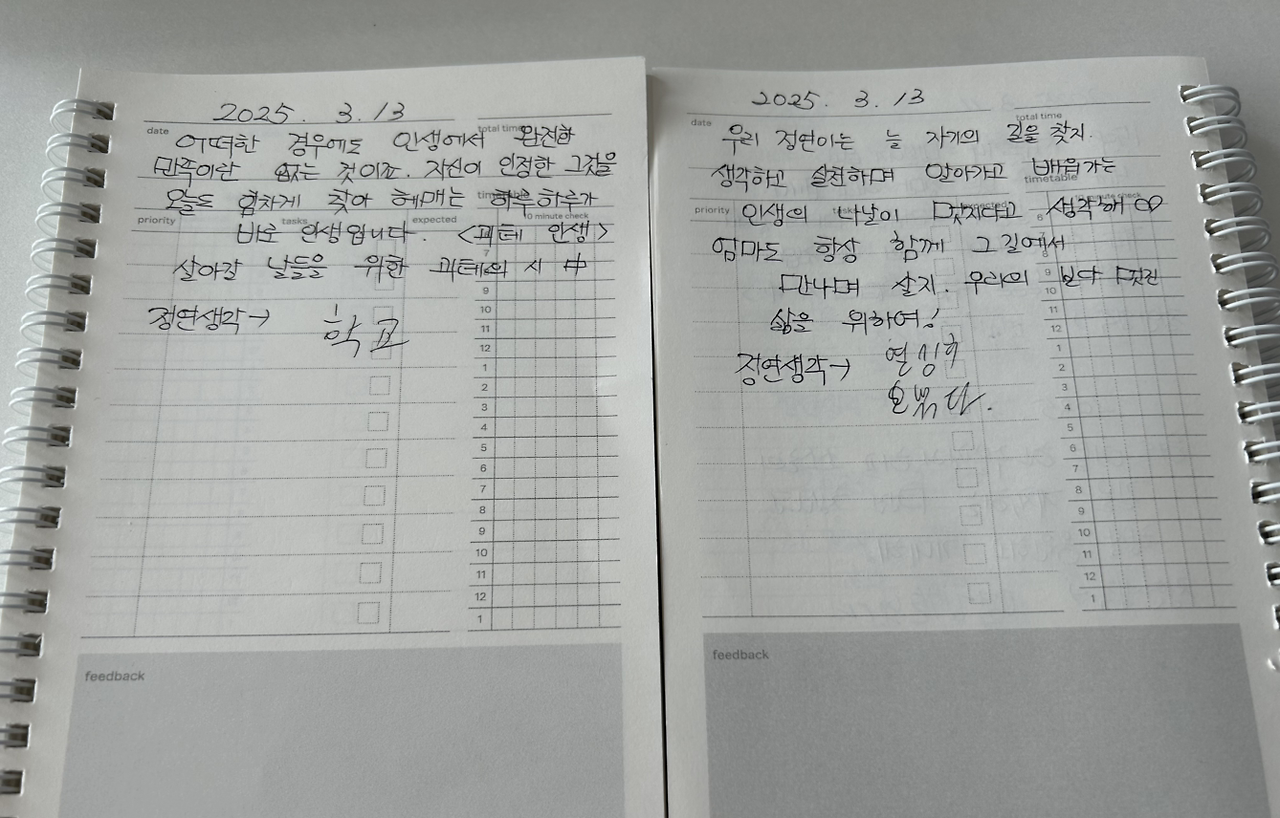 2025. 3. 13
date
total time
어떠한 경우에도 인생에서 완전한
만족이란 없는 것이죠. 자신이 인정한 그것을
오늘도 힘차게 찾아 헤매는 하루하루가
priority
tasks
expected
10 minute check
바로 인생입니다. <괴테 인생>
살아갈 날들을 위한 괴테의 시 中
정연생각→ 학교
9
10
11
12
1
2
3
4
5
6
7
8
9
10
11
12
1
feedback
2025. 3. 13
date
total time
우리 정연이는 늘 자기의 길을 찾지.
생각하고 실천하며 알아가고 배워가는
timetable
priority
minute check
인생의 나날이 멋지다고 생각해 ♡
엄마도 항상 함께 그 길에서
만나며 살지. 우리의 보다 멋진
삶을 위하여!
정연생각→ 열심히
8
9
10
11
12
1
2
3
4
5
6
7
8
9
10
11
12
1
feedback